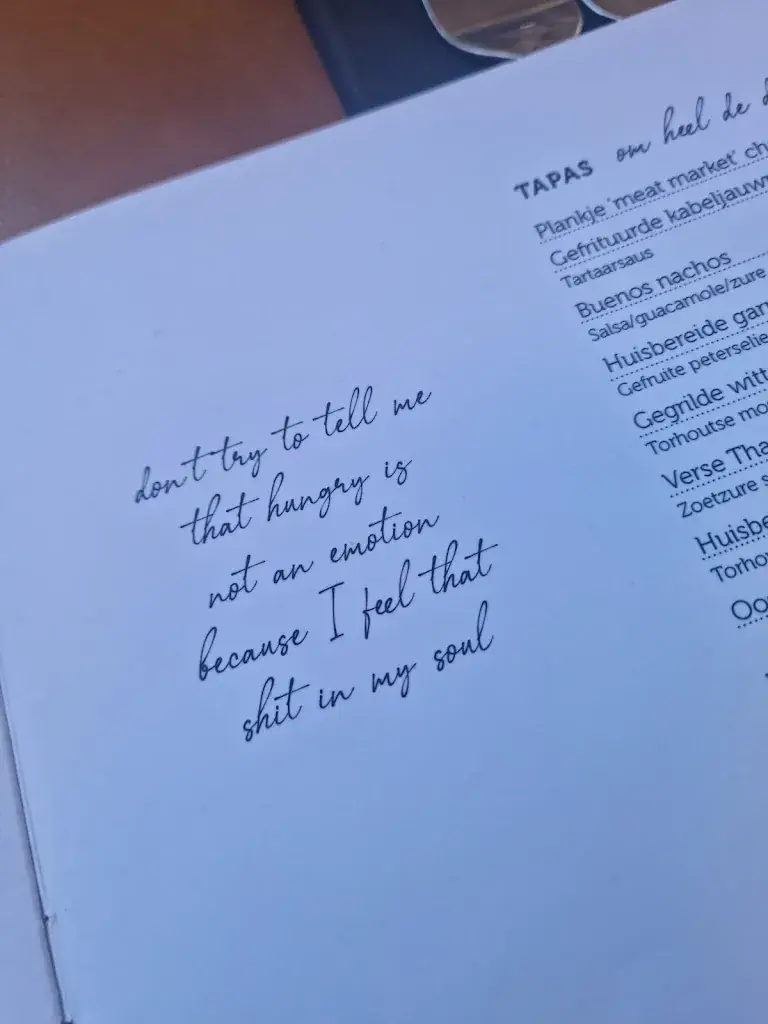 don't try to tell me
that hungry is
not an emotion
because I feel that
shit in my soul
TAPAS om heel de
Plankje 'meat market'
Gefrituurde
Tartaarsaus
Buenos nachos
Salsa/guacamole/zure
Huisbereide
Gefruite peterselie
Gegrilde
Torhoutse
Verse
Zoetzure